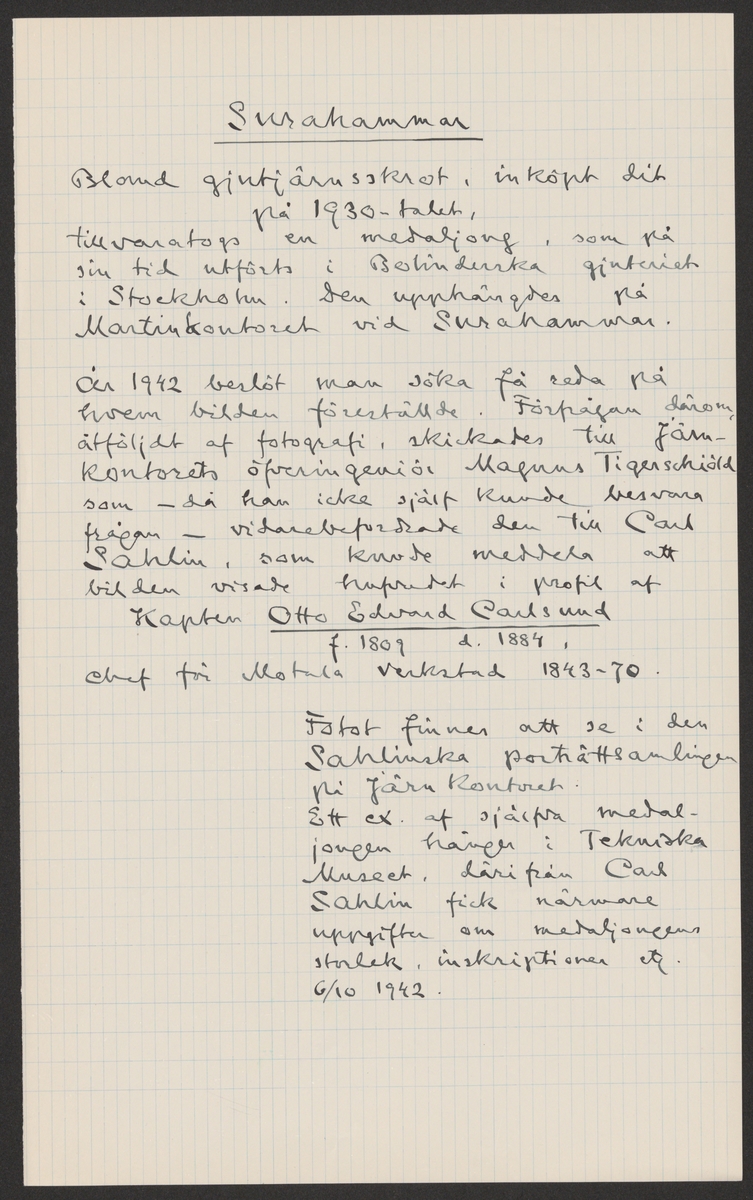 Surahammar
Bland gjutjärnsskrot, inköpt dit
på 1930-talet,
tillvaratogs en medaljong, som på
sin tid utförts i Bolinderska gjuteriet
i Stockholm. Den upphängdes på
Martinkontoret vid Surahammar.
År 1942 beslöt man söka få reda på
hvem bilden föreställde. Förfrågan därom,
åtföljdt af fotografi, skickades till Järn-
kontorets öfveringeniör Magnus Tigerschiöld
som – då han icke själf kunde besvara
frågan – vidarebefordrade den till Carl
Sahlin, som kunde meddela att
bilden visade hufvudet i profil af
Kapten Otto Edvard Carlsund
f. 1809 d. 1884,
chef för Motala Verkstad 1843-70.
Fotot finnes att se i den
Sahlinska porträttsamlingen
på Järnkontoret.
Ett ex. af själfva medal-
jongen hänger i Tekniska
Museet, därifrån Carl
Sahlin fick närmare
uppgifter om medaljongens
storlek, inskriptioner etc.
6/10 1942.